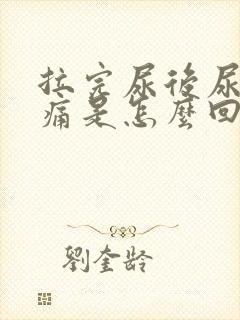 拉完尿後尿
痛是怎麼回
劉奎齡